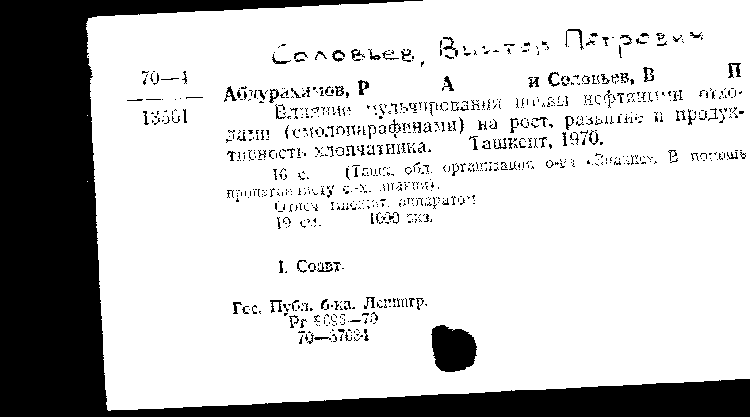 Соловьев, Виктор Петрович
70—4
13561
Абдурахимов, Р А и Соловьев, В П
Влияние мульчирования почвы нефтяными отхо-
дами (смолопарафинами) на рост, развитие и продук-
тивность хлопчатника. Ташкент, 1970.
16 с. (Ташк. обл. организация о-ва «Знание». В помощь
пропагандисту с.-х. знаний).
Отпеч. множит. аппаратом
19 см. 1000 экз.
I. Соавт.
Гос. Публ. б-ка. Ленингр.
Рг